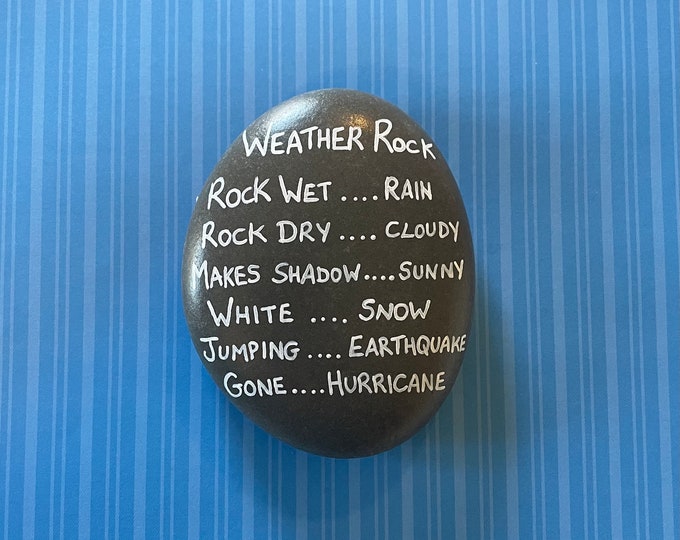 WEATHER ROCK
ROCK WET ....RAIN
ROCK DRY .... CLOUDY
MAKES SHADOW....SUNNY
WHITE .... SNOW
JUMPING .... EARTHQUAKE
GONE....HURRICANE